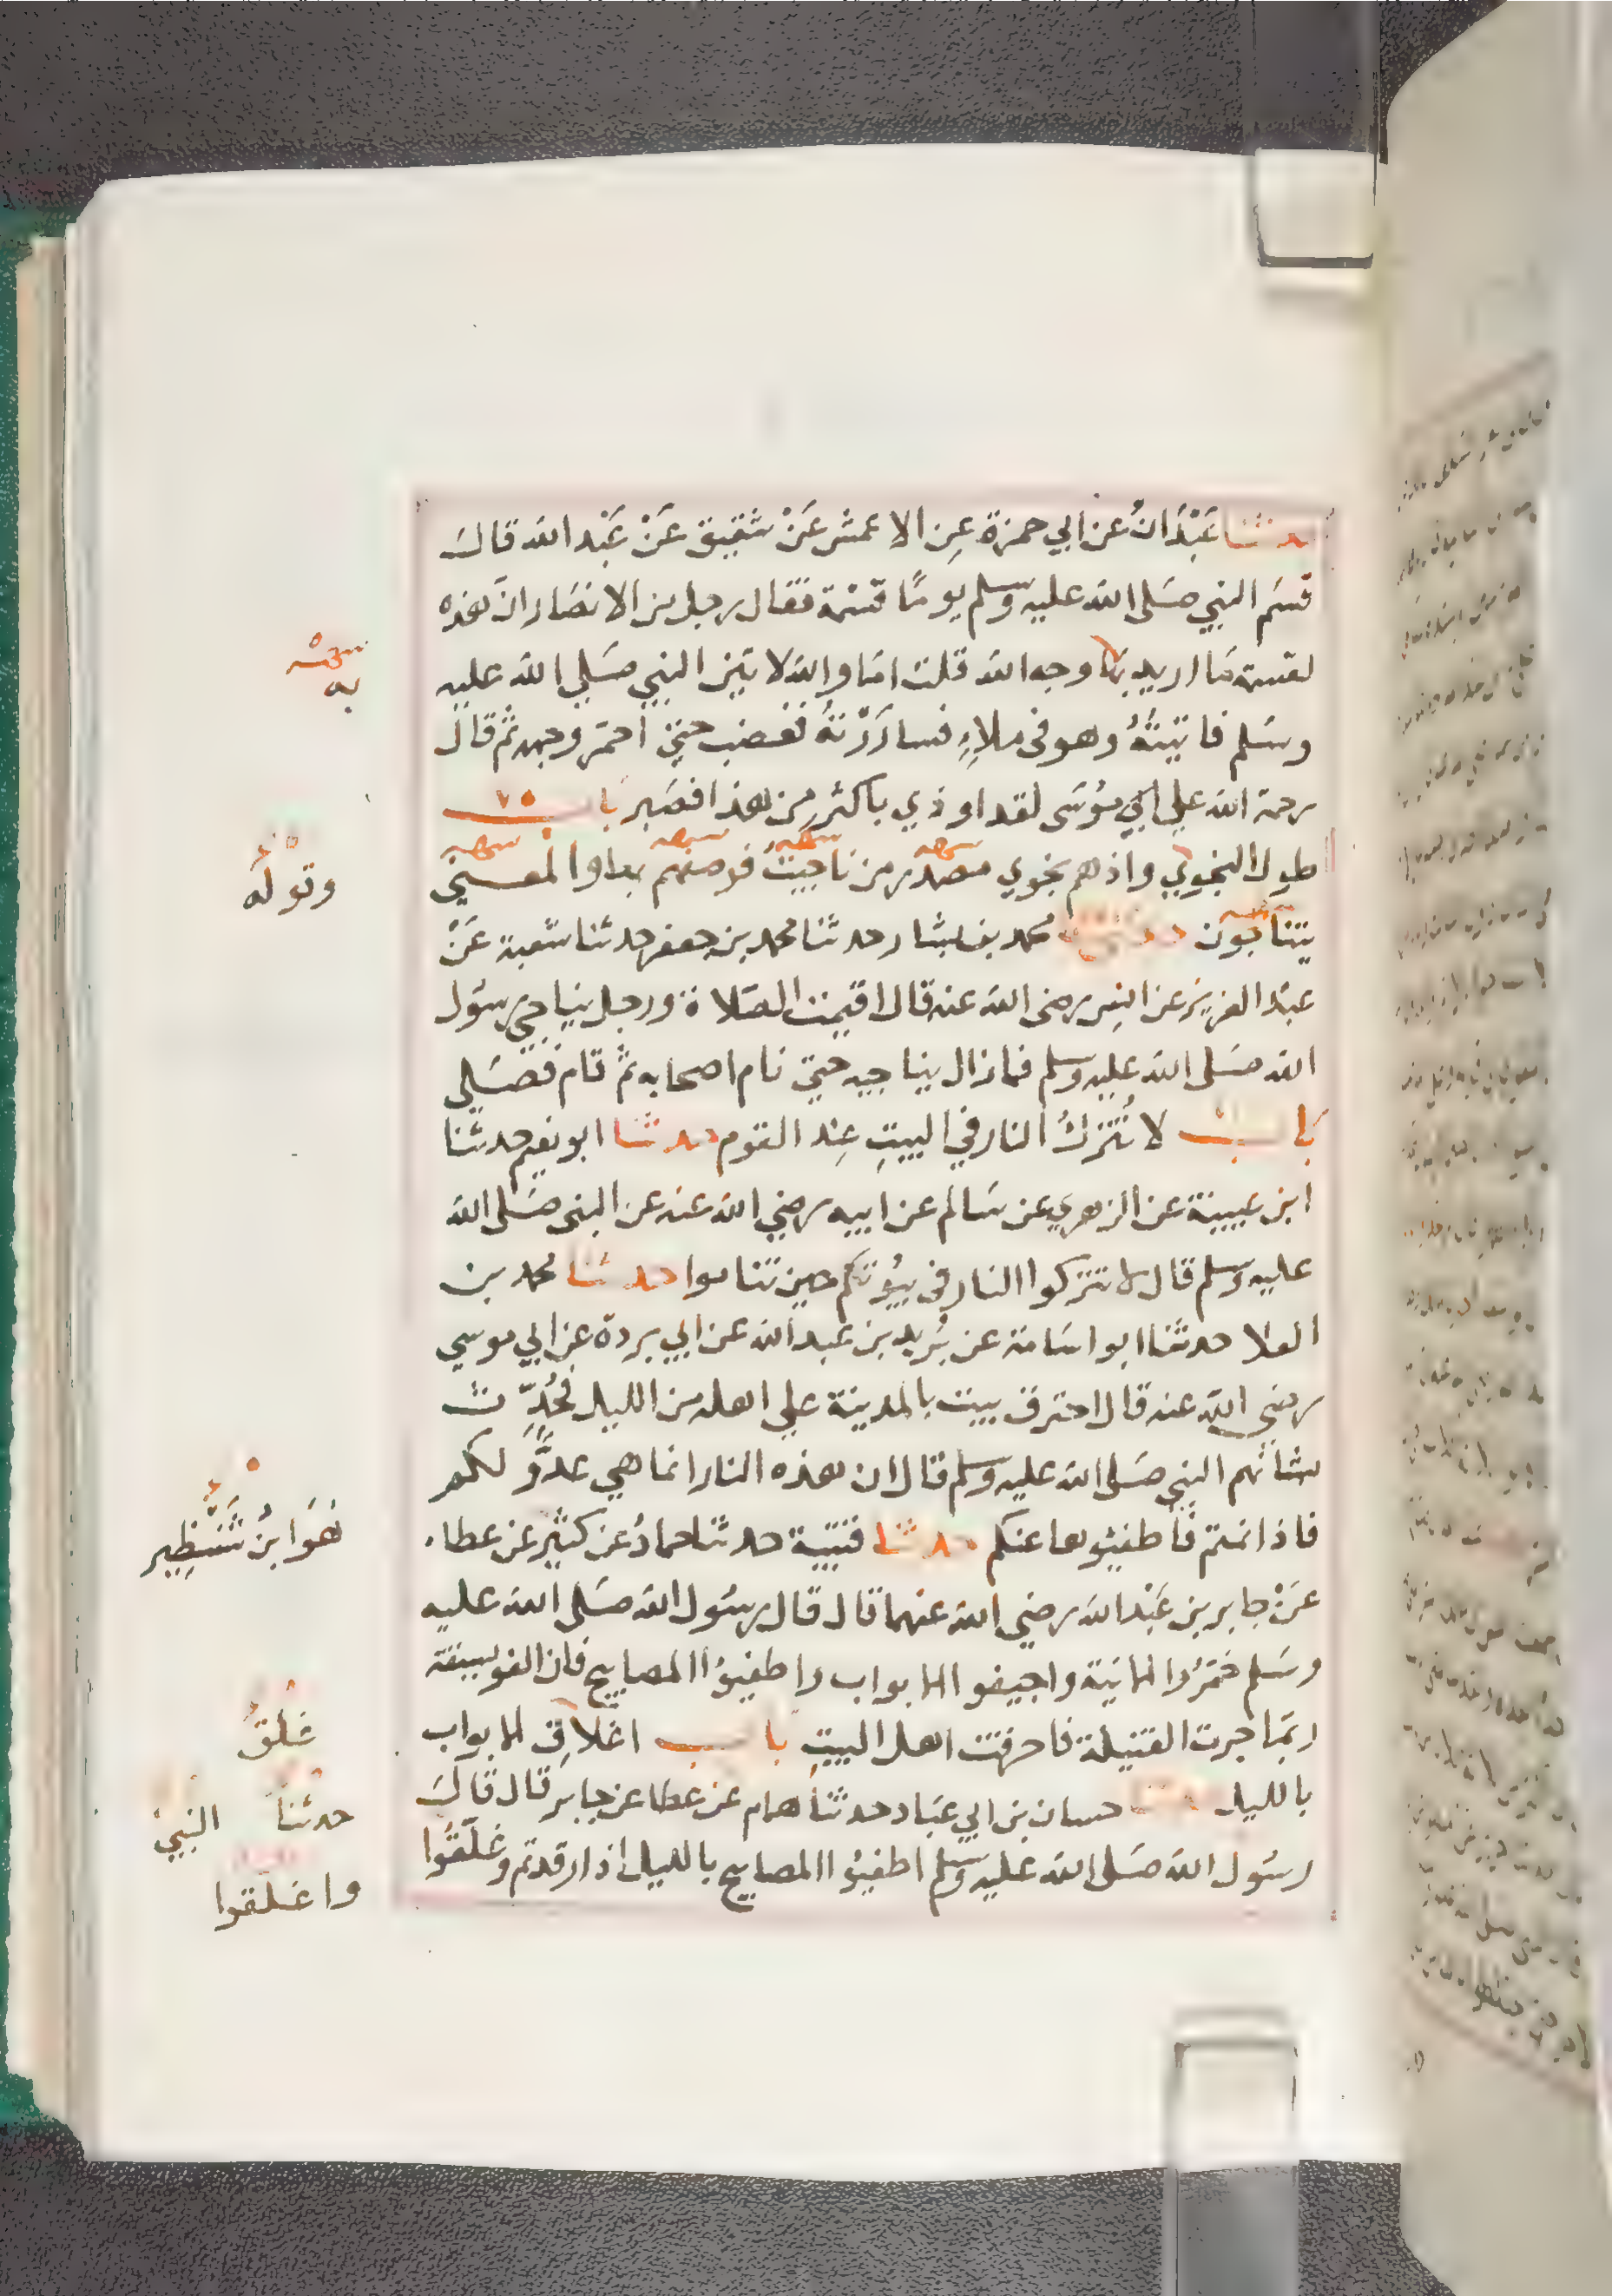 حدثنا عَبْدَانُ عن ابي حمزة عِن الاعمش عَنْ شقيق عَنْ عَبْد الله قالَ
قسَم النبي صَلى الله عليه وسلم يومًا قسْمة فقال رجل من الانصَار انَّ هذه
لقسمة مَا اريد بها وجه الله قلت امَا والله لاتين النبي صَلي الله عليه
وسَلم فاتيتُهُ وهو فى ملاءٍ فسارَرْتهُ فغضب حتيّ احمَر وجهه ثم قال
رحمة الله علي مُوسَى لقد اوذي باكثر مِن هذا فصَبر بَاب
طول النجوي واذ هم نجوي مصدر من ناجيتُ فوصفهم بها والمعنى
يتناجَون حدثنا محمد بن بشار حدثنا محمد بن جعفر حدثنا شعبة عَنْ
عبْد العزيز عن انسٍ رضى الله عنه قال اقيمت الصَلاة ورجل يناجي رسَول
الله صَلى الله عليه وسلم فما زال يناجيه حتيّ نام اصحابه ثمَّ قام فَصَلي
بَاب لا تُتركُ النار في البيتِ عِند النوم حدثنا ابو نعيم حدثنا
ابن عيينة عن الزهري عن سَالم عن ابيه رضي الله عنه عن النبى صَلى الله
عليه وسلم قال لا تتركوا النار فى بيُوتكم حين تناموا حدثنا محمد بن
العلا حدثنا ابو اسَامة عن بُريد بن عبد الله عن ابي بردة عن ابي موسي
رضي الله عنه قال احترق بيت بالمدينة علي اهله من الليل فحُدِّث
بشانهم النبي صَلى الله عليه وسلم قال ان هذه النار انما هي عدوٌّ لكم
فاذا نمتم فاَطفيُوها عنكم حدثنا قتيبة حدثنا حمادُ عن كثير عن عطاء
عَنْ جابر بن عَبْد الله رضي الله عنهما قال قال رسُول الله صَلى الله عليه
وسَلم خمّرُوا الانية واجيفوا الابواب واطفيُوا المصابيح فان الفويسقة
ربمَا جرت الفتيلة فاحرقت اهل البيتِ باب اغلاق الابواب
بالليل حدثنا حسان بن ابي عبَاد حدثنا همام عن عطا عن جابر قال قالَ
رسُول الله صَلى الله عليه وسلم اطفيُوا المصابيح بالليل اذا رقدتم وغلّقُوا
به
وقوله
هُوَ ابنُ شنْظِير
غلق
حدثنا النبيّ
واغلقوا